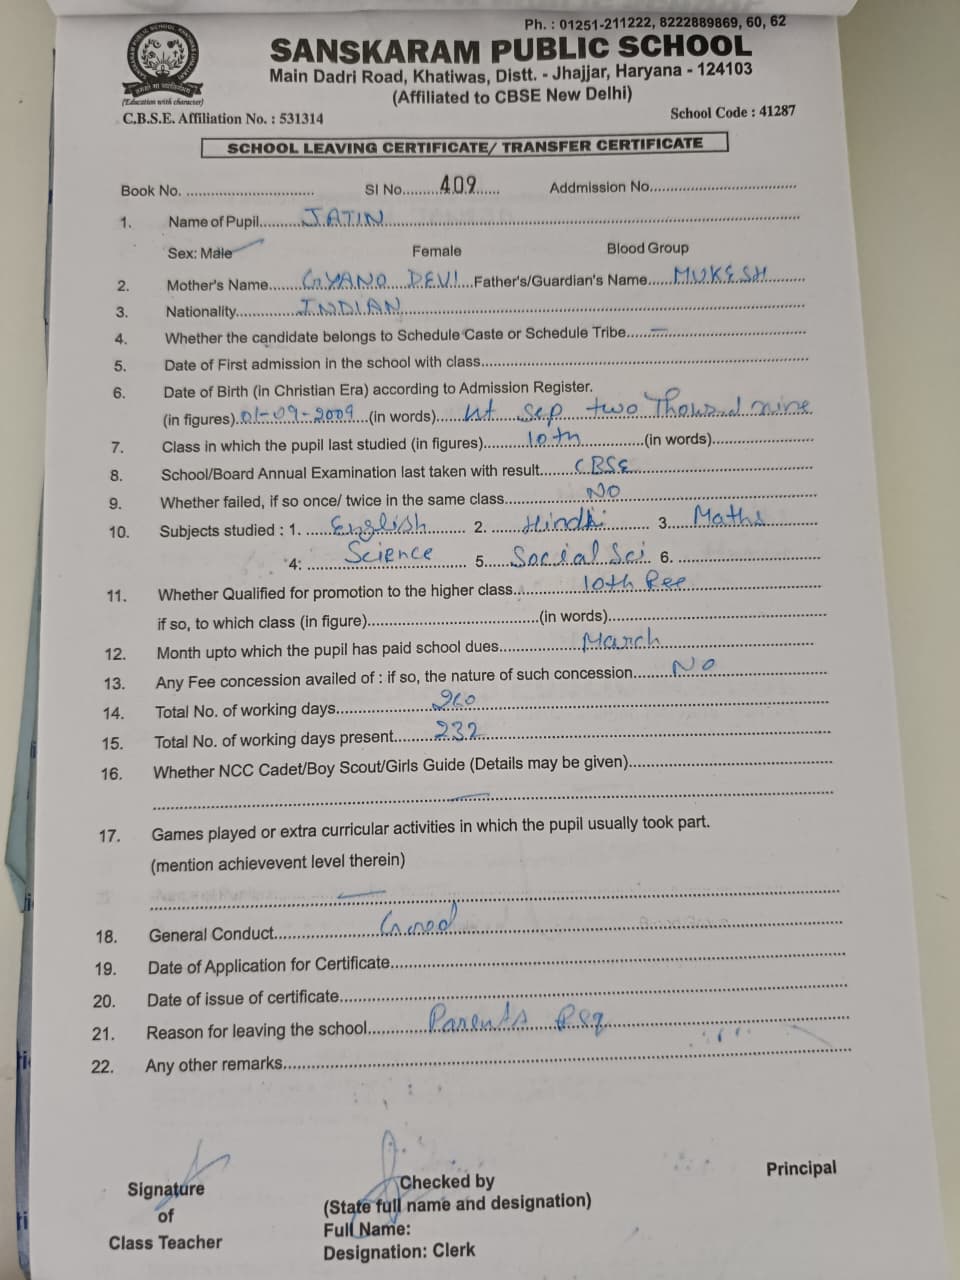 Ph. : 01251-211222, 8222889869, 60, 62
SANSKARAM PUBLIC SCHOOL
Main Dadri Road, Khatiwas, Distt. - Jhajjar, Haryana - 124103
(Affiliated to CBSE New Delhi)
(Education with character)
C.B.S.E. Affiliation No. : 531314 School Code : 41287
SCHOOL LEAVING CERTIFICATE/ TRANSFER CERTIFICATE
Book No. .............................. Sl No. 409 Addmission No...................................
1. Name of Pupil JATIN
Sex: Male Female Blood Group
2. Mother's Name GYANO DEVI Father's/Guardian's Name MUKESH
3. Nationality INDIAN
4. Whether the candidate belongs to Schedule Caste or Schedule Tribe.... —
5. Date of First admission in the school with class
6. Date of Birth (in Christian Era) according to Admission Register.
(in figures) 01-09-2009 (in words) 1st Sep two Thousand nine
7. Class in which the pupil last studied (in figures) 10th (in words)
8. School/Board Annual Examination last taken with result CBSE
9. Whether failed, if so once/ twice in the same class NO
10. Subjects studied : 1. English 2. Hindhi 3. Maths
4: Science 5. Social Sci 6.
11. Whether Qualified for promotion to the higher class 10th
if so, to which class (in figure) (in words)
12. Month upto which the pupil has paid school dues March
13. Any Fee concession availed of : if so, the nature of such concession NO
14. Total No. of working days
15. Total No. of working days present 232
16. Whether NCC Cadet/Boy Scout/Girls Guide (Details may be given)
—
17. Games played or extra curricular activities in which the pupil usually took part.
(mention achievevent level therein)
—
18. General Conduct Good
19. Date of Application for Certificate
20. Date of issue of certificate
21. Reason for leaving the school Parents Req
22. Any other remarks
Signature
of
Class Teacher
Checked by
(State full name and designation)
Full Name:
Designation: Clerk
Principal